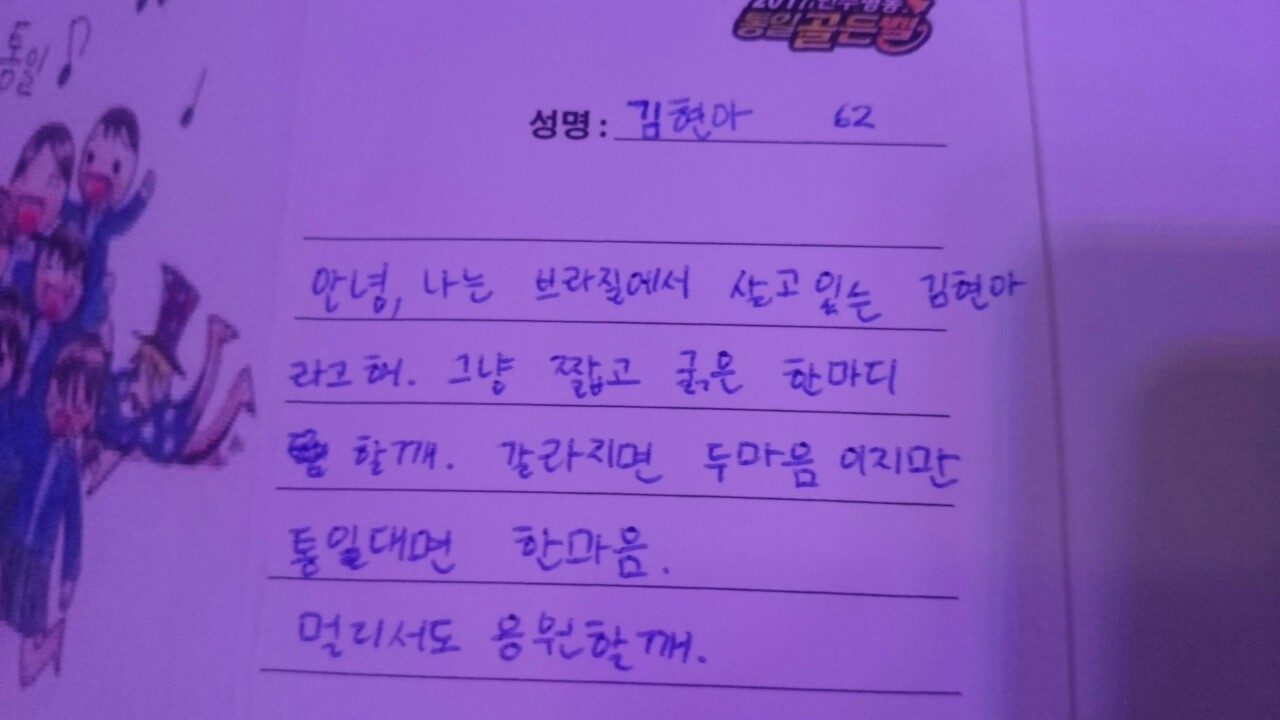 통일
통일골든벨
성명 : 김현아 62
안녕, 나는 브라질에서 살고있는 김현아
라고해. 그냥 짧고 굵은 한마디
할깨. 갈라지면 두마음 이지만
통일대면 한마음.
멀리서도 응원할깨.